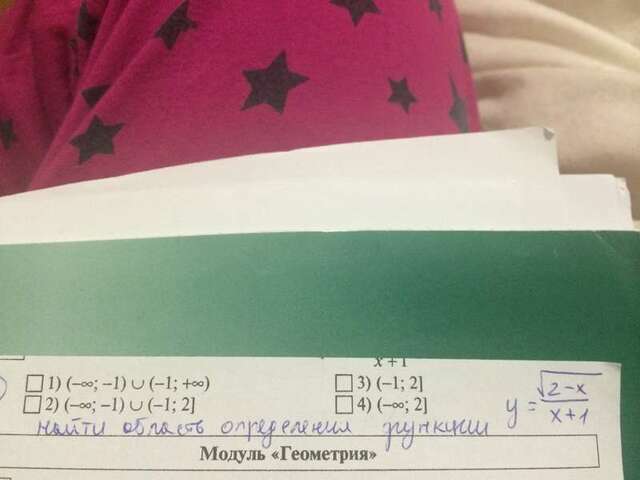 x+1
1) (–∞; –1) ∪ (–1; +∞)
3) (–1; 2]
2) (–∞; –1) ∪ (–1; 2]
4) (–∞; 2]
y = √(2-x)/(x+1)
найти область определения функции
Модуль «Геометрия»